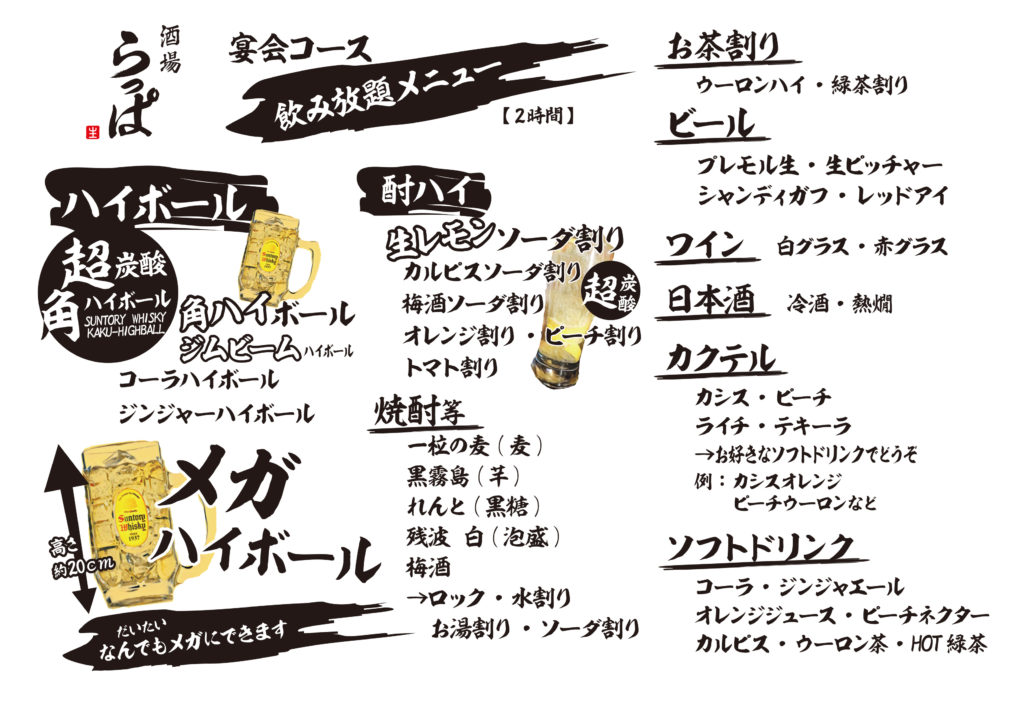 酒場
らっぱ
生
宴会コース
飲み放題メニュー
【2時間】
ハイボール
超炭酸
角ハイボール
SUNTORY WHISKY
KAKU-HIGHBALL
角ハイボール
ジムビームハイボール
コーラハイボール
ジンジャーハイボール
メガ
ハイボール
高さ
約20cm
Suntory
Whisky
1937
だいたい
なんでもメガにできます
酎ハイ
生レモンソーダ割り
カルピスソーダ割り
梅酒ソーダ割り
オレンジ割り・ピーチ割り
トマト割り
超炭酸
焼酎等
一粒の麦(麦)
黒霧島(芋)
れんと(黒糖)
残波 白(泡盛)
梅酒
→ロック・水割り
お湯割り・ソーダ割り
お茶割り
ウーロンハイ・緑茶割り
ビール
プレモル生・生ピッチャー
シャンディガフ・レッドアイ
ワイン 白グラス・赤グラス
日本酒 冷酒・熱燗
カクテル
カシス・ピーチ
ライチ・テキーラ
→お好きなソフトドリンクでどうぞ
例:カシスオレンジ
ピーチウーロンなど
ソフトドリンク
コーラ・ジンジャエール
オレンジジュース・ピーチネクター
カルピス・ウーロン茶・HOT緑茶